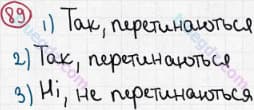 89 1) Так, перетинаються
2) Так, перетинаються
3) Ні, не перетинаються